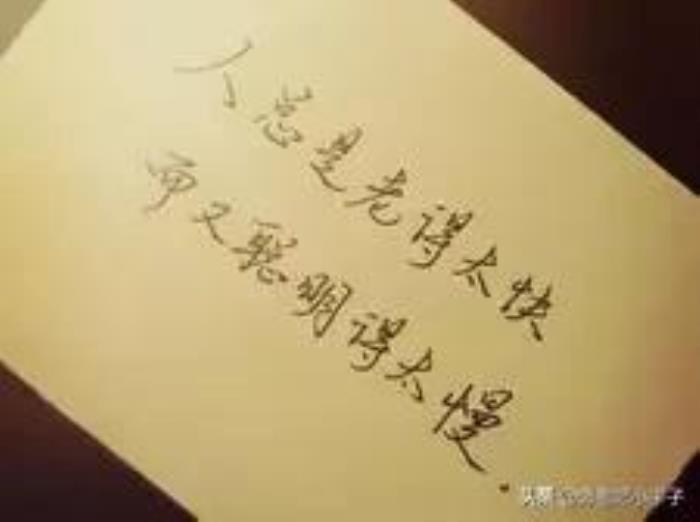 人总是老得太快
而又聪明得太慢.
头条